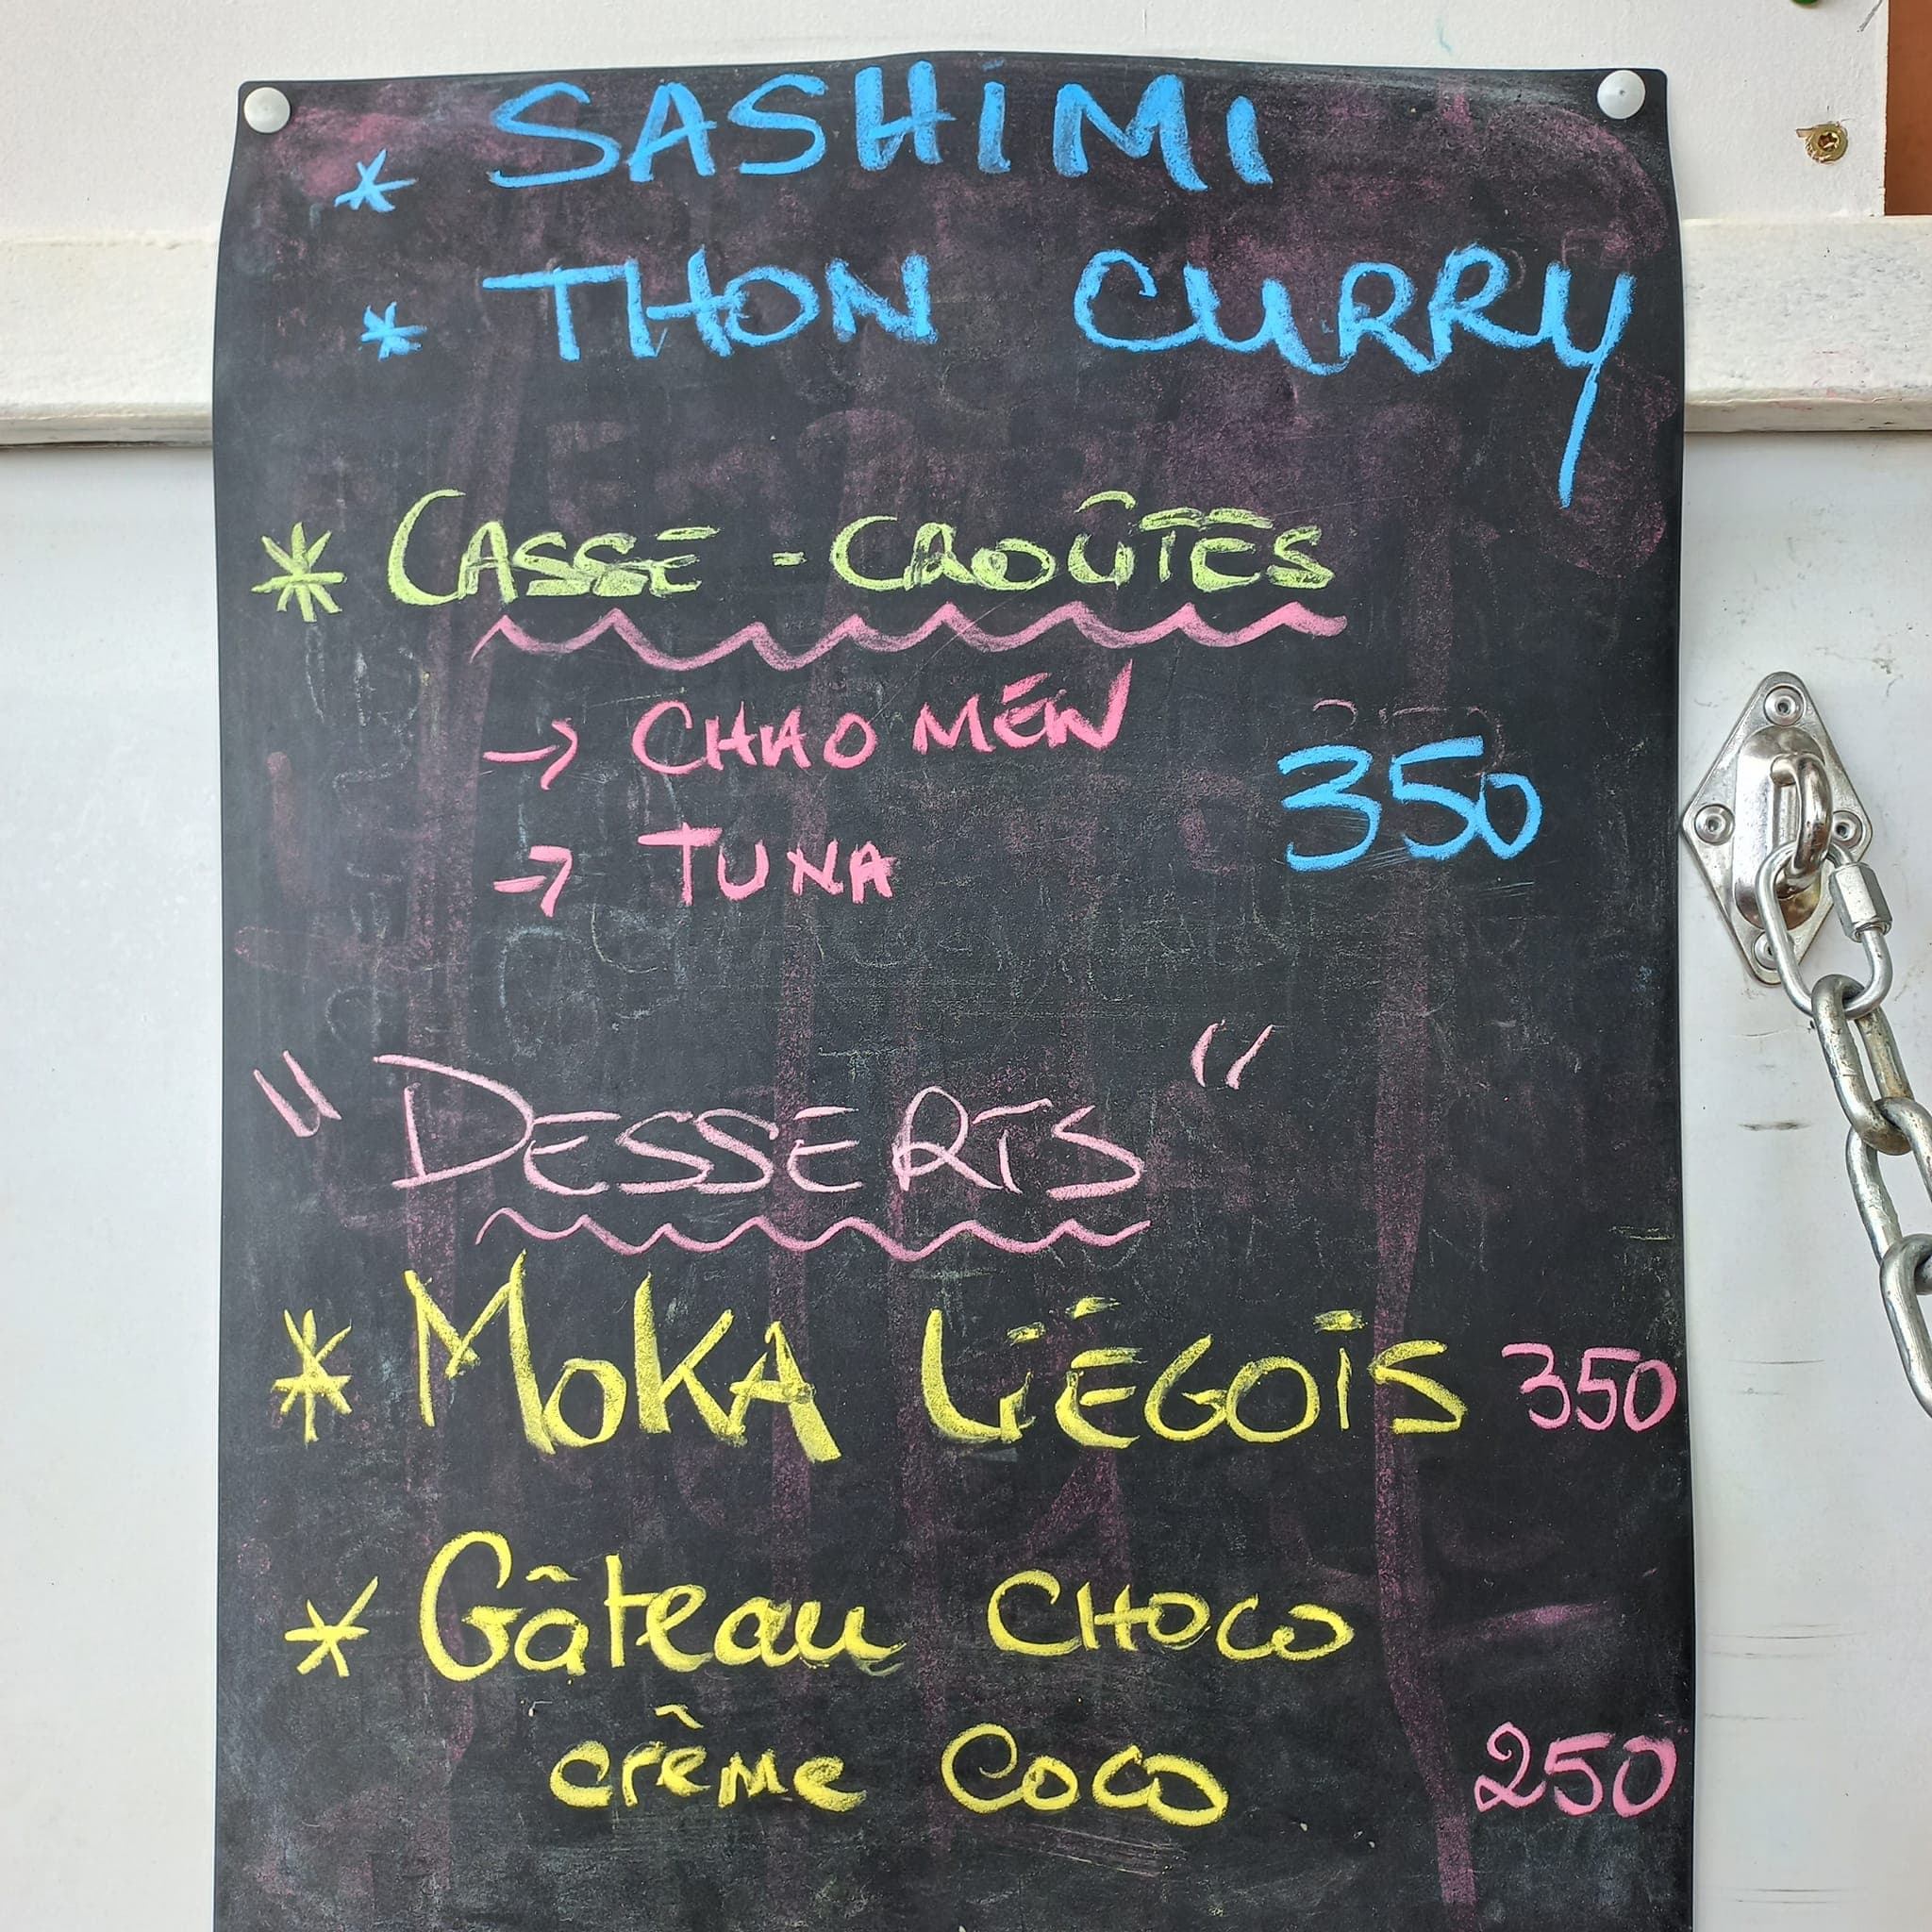 * SASHiMI
* THON CURRY
* CASSE - CROÛTES
→ CHAO MEN
350
→ TUNA
" DESSERTS "
* MOKA LiÉGOIS 350
* Gâteau CHOCO
crême COCO 250